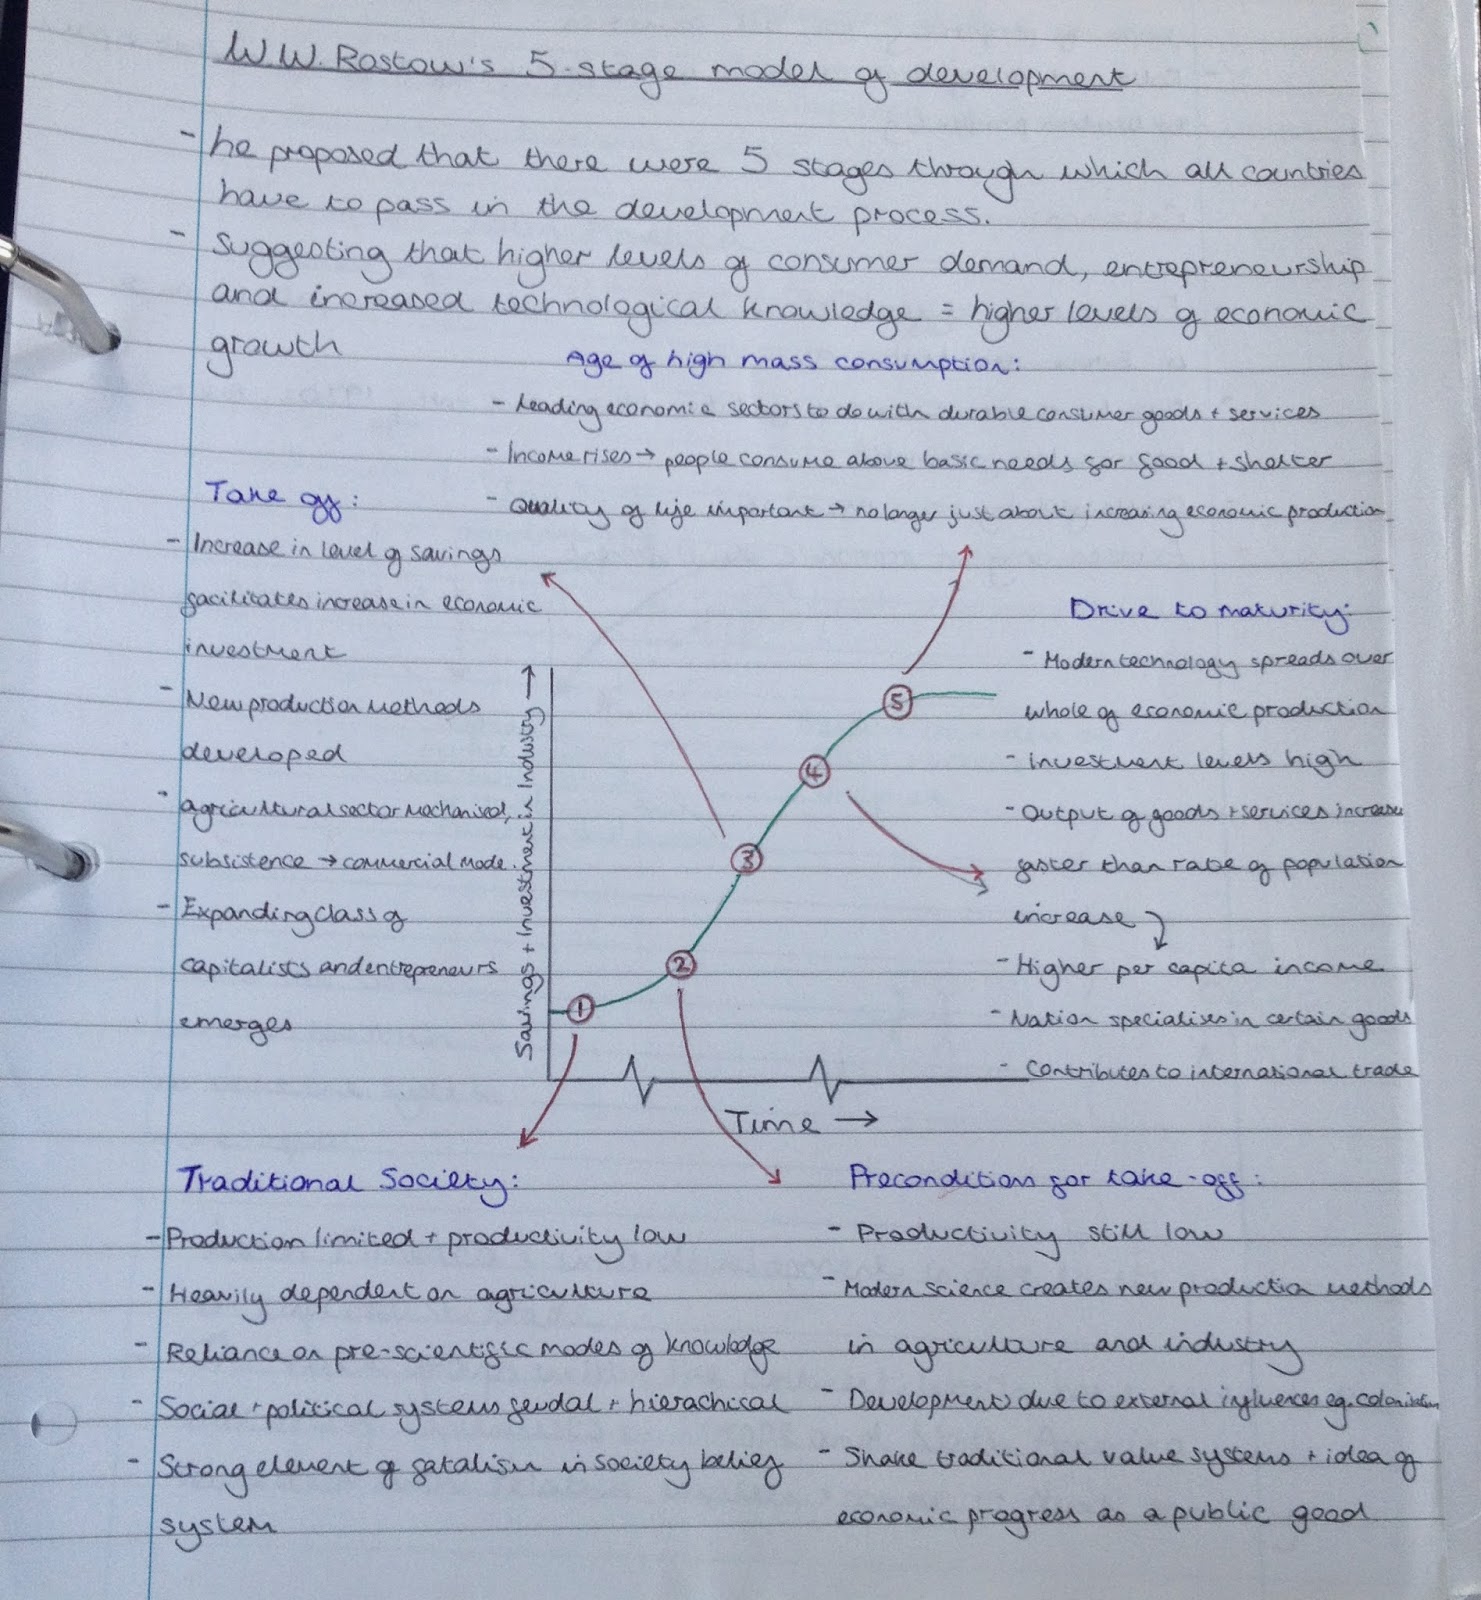 W.W. Rostow's 5-stage model of development
- he proposed that there were 5 stages through which all countries
have to pass in the development process.
- Suggesting that higher levels of consumer demand, entrepreneurship
and increased technological knowledge = higher levels of economic
growth
Age of high mass consumption:
- Leading economic sectors to do with durable consumer goods + services
- Income rises → people consume above basic needs for food + shelter
- Quality of life important → no longer just about increasing economic production
Take off:
- Increase in level of savings
facilitates increase in economic
investment
- New production methods
developed
- agricultural sector mechanised,
subsistence → commercial mode.
- Expanding class of
capitalists and entrepreneurs
emerges
Drive to maturity:
- Modern technology spreads over
whole of economic production
- investment levels high
- Output of goods + services increase
faster than rate of population
increase
- Higher per capita income
- Nation specialises in certain goods
- Contributes to international trade
Savings + Investment in Industry →
5
4
3
2
1
Time →
Traditional Society:
- Production limited + productivity low
- Heavily dependent on agriculture
- Reliance on pre-scientific modes of knowledge
- Social + political systems feudal + hierachical
- Strong element of fatalism in society belief
system
Precondition for take-off:
- Productivity still low
- Modern science creates new production methods
in agriculture and industry
- Development due to external influences eg. colonisation
- Shake traditional value systems + idea of
economic progress as a public good